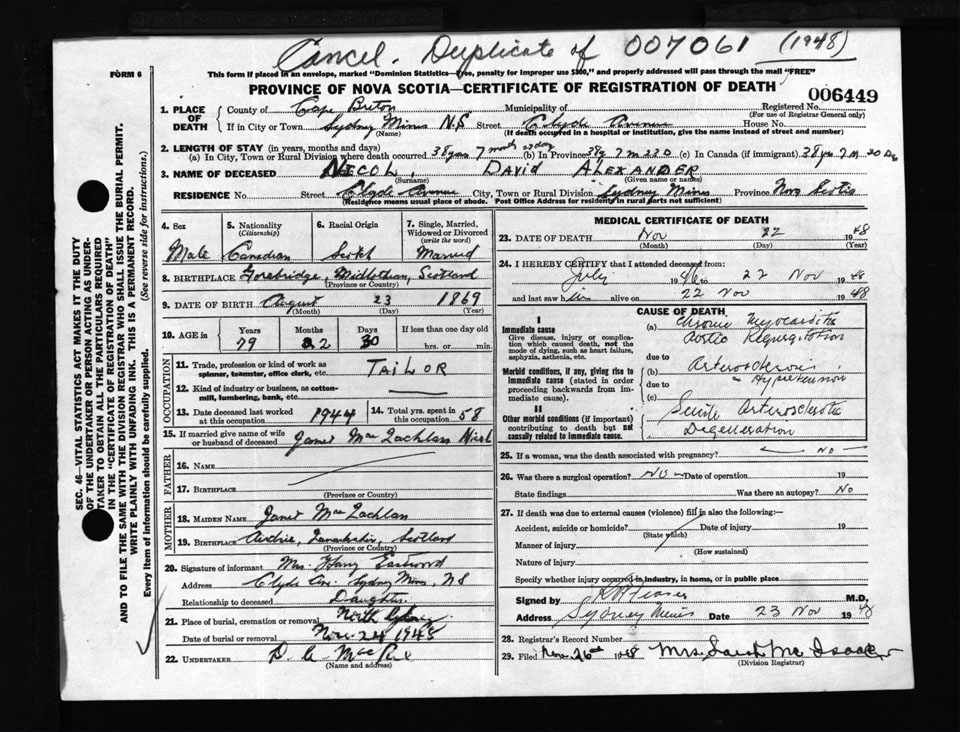 Cancel. Duplicate of 007061 (1948)
FORM 6
This form if placed in an envelope, marked "Dominion Statistics—Free, penalty for improper use $300," and properly addressed will pass through the mail "FREE"
PROVINCE OF NOVA SCOTIA—CERTIFICATE OF REGISTRATION OF DEATH
006449
1. PLACE OF DEATH County of Cape Breton Municipality of Registered No.
(For use of Registrar General only)
If in City or Town Sydney Mines N.S. Street Clyde Avenue House No.
(Name) (If death occurred in a hospital or institution, give the name instead of street and number)
2. LENGTH OF STAY (in years, months and days)
(a) In City, Town or Rural Division where death occurred 38 yrs 7 month (b) In Province 38 y 7 m (c) In Canada (if immigrant) 38 yrs 7 M
3. NAME OF DECEASED NICOL, DAVID ALEXANDER
(Surname) (Given name or names)
RESIDENCE No. Street Clyde Avenue City, Town or Rural Division Sydney Mines Province Nova Scotia
(Residence means usual place of abode. Post Office Address for residents in rural parts not sufficient)
4. Sex Male
5. Nationality (Citizenship) Canadian
6. Racial Origin Scotch
7. Single, Married, Widowed or Divorced (write the word) Married
8. BIRTHPLACE Gorebridge, Midlothian, Scotland
(Province or Country)
9. DATE OF BIRTH August 23 1869
(Month) (Day) (Year)
10. AGE in Years 79 Months 2 Days 30 If less than one day old hrs. or min.
OCCUPATION
11. Trade, profession or kind of work as spinner, teamster, office clerk, etc. TAILOR
12. Kind of industry or business, as cotton-mill, lumbering, bank, etc.
13. Date deceased last worked at this occupation 1944
14. Total yrs. spent in this occupation 58
15. If married give name of wife or husband of deceased Janet MacLachlan Nicol
FATHER
16. NAME
17. BIRTHPLACE
(Province or Country)
MOTHER
18. MAIDEN NAME Janet MacLachlan
19. BIRTHPLACE Lanarkshire, Scotland
(Province or Country)
20. Signature of informant Mrs. Harry Eastwood
Address Clyde Ave. Sydney Mines, NS
Relationship to deceased Daughter
21. Place of burial, cremation or removal North Sydney
Date of burial or removal Nov. 24 1948
22. UNDERTAKER
(Name and address)
MEDICAL CERTIFICATE OF DEATH
23. DATE OF DEATH Nov 22 1948
(Month) (Day) (Year)
24. I HEREBY CERTIFY that I attended deceased from:
July 1946 to 22 Nov 1948
and last saw him alive on 22 Nov 1948
CAUSE OF DEATH
I
Immediate cause
Give disease, injury or complication which caused death, not the mode of dying, such as heart failure, asphyxia, asthenia, etc.
(a) Chronic Myocarditis
Aortic Regurgitation
due to
Morbid conditions, if any, giving rise to immediate cause (stated in order proceeding backwards from immediate cause).
(b) Arteriosclerosis
due to Hypertension
(c)
II
Other morbid conditions (if important) contributing to death but not causally related to immediate cause.
Senile Arteriosclerotic
Degeneration
25. If a woman, was the death associated with pregnancy? NO
26. Was there a surgical operation? NO Date of operation 19
State findings Was there an autopsy? No
27. If death was due to external causes (violence) fill in also the following:—
Accident, suicide or homicide? Date of injury 19
(State which)
Manner of injury
(How sustained)
Nature of injury
Specify whether injury occurred in industry, in home, or in public place
Signed by M.D.
Address Sydney Mines Date 23 Nov 1948
28. Registrar's Record Number
29. Filed Nov. 26th 1948 Mrs. Sarah McIsaac
(Division Registrar)
SEC. 46—VITAL STATISTICS ACT MAKES IT THE DUTY
OF THE UNDERTAKER OR PERSON ACTING AS UNDER-
TAKER TO OBTAIN ALL THE PARTICULARS REQUIRED
IN THE "CERTIFICATE OF REGISTRATION OF DEATH"
AND TO FILE THE SAME WITH THE DIVISION REGISTRAR WHO SHALL ISSUE THE BURIAL PERMIT.
WRITE PLAINLY WITH UNFADING INK. THIS IS A PERMANENT RECORD.
Every item of information should be carefully supplied. (See reverse side for instructions.)